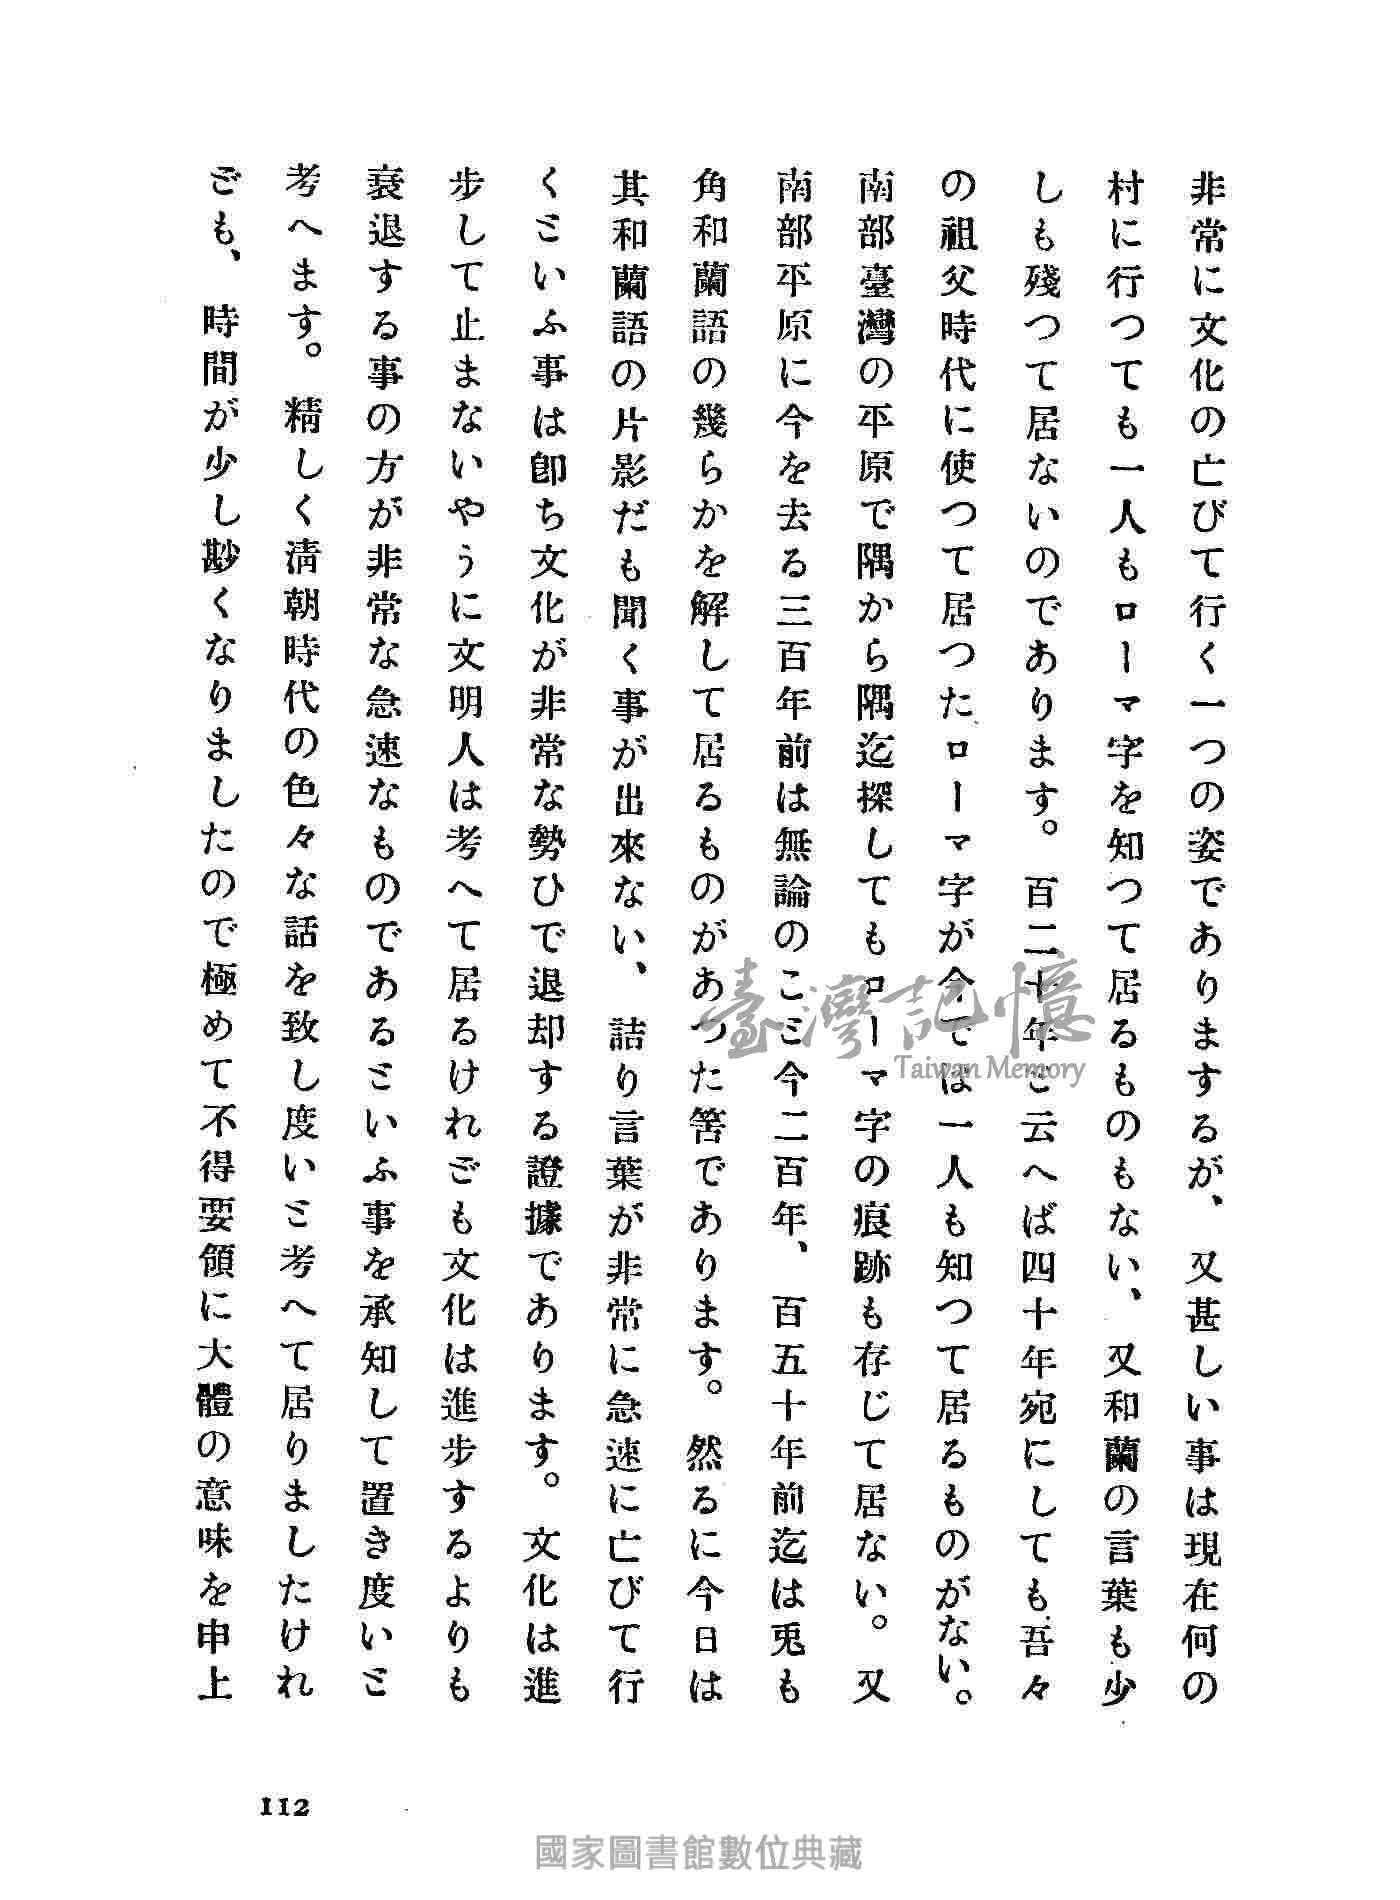 非常に文化の亡びて行く一つの姿でありまするが、又甚しい事は現在何の
村に行つても一人もローマ字を知つて居るものもない、又和蘭の言葉も少
しも殘つて居ないのであります。百二十年と云へば四十年宛にしても吾々
の祖父時代に使つて居つたローマ字が今では一人も知つて居るものがない。
南部臺灣の平原で隅から隅迄探してもローマ字の痕跡も存じて居ない。又
南部平原に今を去る三百年前は無論のこと今二百年、百五十年前迄は兎も
角和蘭語の幾らかを解して居るものがあつた筈であります。然るに今日は
其和蘭語の片影だも聞く事が出來ない、詰り言葉が非常に急速に亡びて行
くといふ事は卽ち文化が非常な勢ひで退却する證據であります。文化は進
步して止まないやうに文明人は考へて居るけれども文化は進步するよりも
衰退する事の方が非常な急速なものであるといふ事を承知して置き度いと
考へます。精しく淸朝時代の色々な話を致し度いと考へて居りましたけれ
ども、時間が少し尠くなりましたので極めて不得要領に大體の意味を申上
112
臺灣記憶
Taiwan Memory
國家圖書館數位典藏